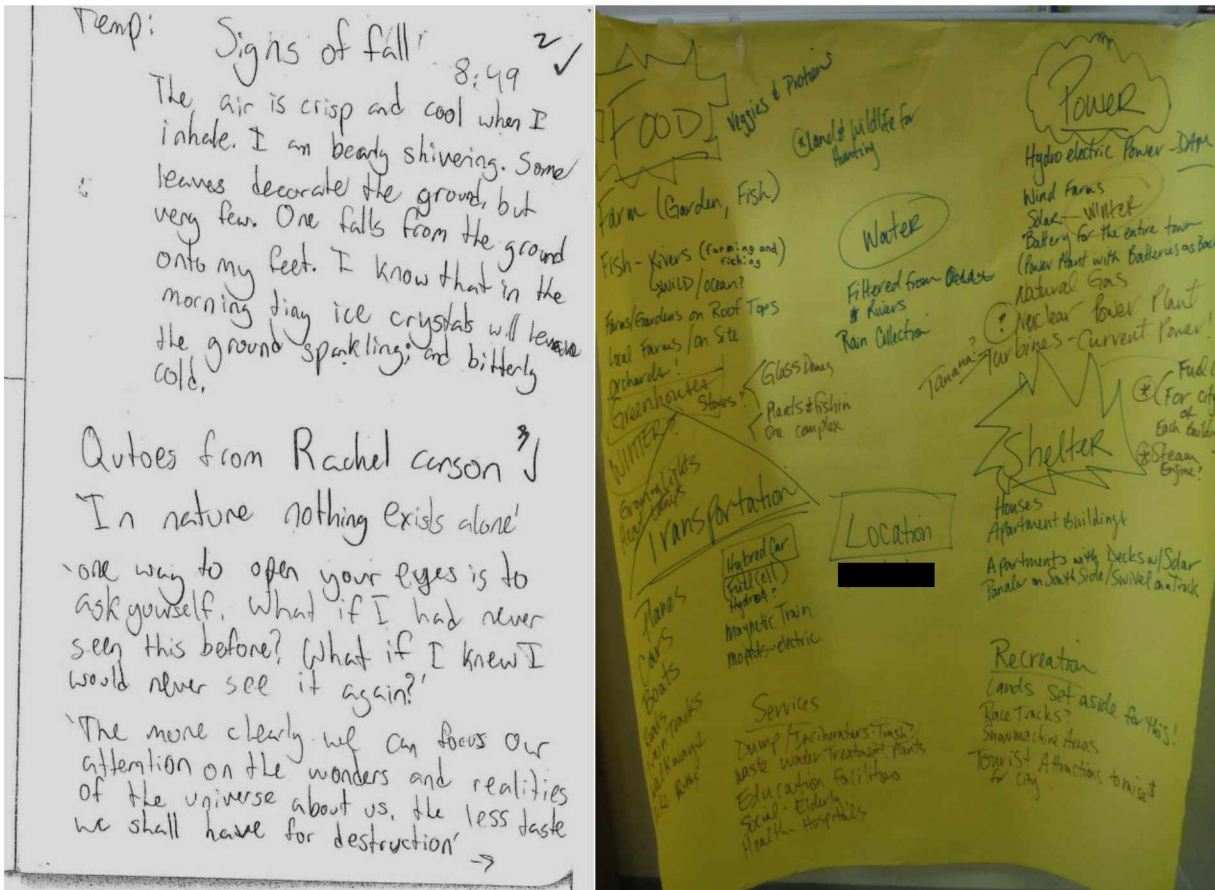 Temp:
Signs of fall
2 ✓
8:49
The air is crisp and cool when I
inhale. I am bearly shivering. Some
leaves decorate the ground, but
very few. One falls from the ground
onto my feet. I know that in the
morning tiny ice crystals will
the ground sparkling; and bitterly
cold.
Qutoes from Rachel carson 3 ✓
'In nature nothing exists alone'
'one way to open your eyes is to
ask yourself. What if I had never
seen this before? What if I knew I
would never see it again?'
'The more clearly we can focus our
attention on the wonders and realities
of the universe about us, the less taste
we shall have for destruction'
→
FOOD
Veggies & Proteins
*Land & Wildlife for
Hunting
Farm (Garden, Fish)
Fish - Rivers (Farming and
Fishing)
WILD/ocean?
Farms/Gardens on Roof Tops
Local Farms / on Site
Orchards!
Greenhouses
Stores?
Glass Domes
Plants & fish in
One complex
WINTER?
Growing Lights
Water
Filtered from
& Rivers
Rain Collection
Power
Hydroelectric Power - DAM
Wind Farms
Solar - WINTER
Battery for the entire town
(Power Plant with Batteries as Bac
Natural Gas
? Nuclear Power Plant
Tanana? Turbines - Current Power!
* Fuel C
(For city
or
Each Buildin
* Steam
Engine?
Shelter
Houses
Apartment Buildings
Apartments with Decks w/Solar
Panels on South Side/Swivel on a Track
Transportation
Hybrid Car
Fuel Cell)
Hydro?
Magnetic Train
Mopeds-electric
Planes
Cars
Boats
Train Tracks
Walkways
Location
Services
Dump/Incinerators-Trash?
Waste Water Treatment Plants
Education Facilities
Social - Elderly
Health - Hospitals
Recreation
Lands set aside for this!
Race Tracks?
Snowmachine Areas
Tourist Attractions to raise $
for city